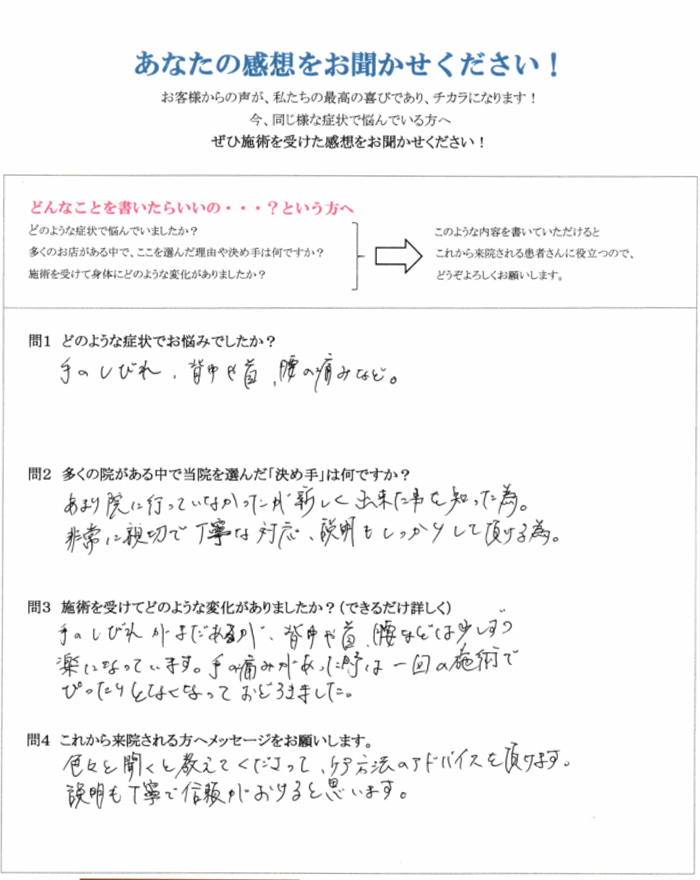 あなたの感想をお聞かせください！
お客様からの声が、私たちの最高の喜びであり、チカラになります！
今、同じ様な症状で悩んでいる方へ
ぜひ施術を受けた感想をお聞かせください！
どんなことを書いたらいいの・・・？という方へ
どのような症状で悩んでいましたか？
多くのお店がある中で、ここを選んだ理由や決め手は何ですか？
施術を受けて身体にどのような変化がありましたか？
このような内容を書いていただけると
これから来院される患者さんに役立つので、
どうぞよろしくお願いします。
問1 どのような症状でお悩みでしたか？
手のしびれ、背中や首、腰の痛みなど。
問2 多くの院がある中で当院を選んだ「決め手」は何ですか？
あまり院に行っていなかったが新しく出来た事を知った為。
非常に親切で丁寧な対応、説明もしっかりして頂ける為。
問3 施術を受けてどのような変化がありましたか？（できるだけ詳しく）
手のしびれがまだあるが、背中や首、腰などは少しずつ
楽になっています。手の痛みがあった時は一回の施術で
ぴったりとなくなっておどろきました。
問4 これから来院される方へメッセージをお願いします。
色々と聞くと教えてくださって、ケア方法のアドバイスを頂けます。
説明も丁寧で信頼がおけると思います。